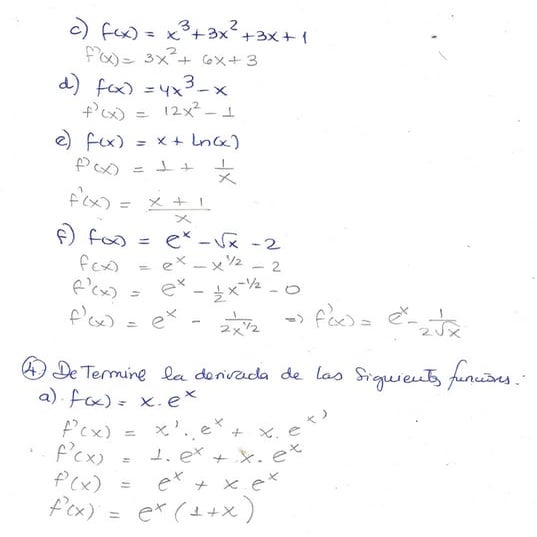 c) f(x) = x³+3x²+3x+1
f'(x) = 3x² + 6x + 3
d) f(x) = 4x³ - x
f'(x) = 12x² - 1
e) f(x) = x + Ln(x)
f'(x) = 1 + 1/x
f'(x) = (x + 1)/x
f) f(x) = eˣ - √x - 2
f(x) = eˣ - x^1/2 - 2
f'(x) = eˣ - 1/2 x^-1/2 - 0
f'(x) = eˣ - 1/(2x^1/2) => f'(x) = eˣ - 1/(2√x)
④ DeTermine la derivada de las Siguientes funcions.:
a). f(x) = x. eˣ
f'(x) = x'. eˣ + x. eˣ'
f'(x) = 1. eˣ + x. eˣ
f'(x) = eˣ + x. eˣ
f'(x) = eˣ (1+x)